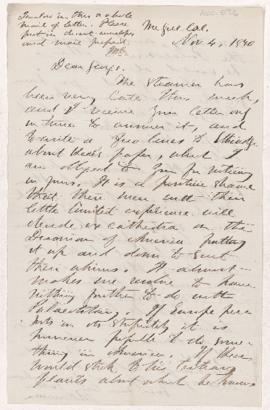 Inclosed in this a whole
mail of letter. Please
put in direct envelopes
and mail prepaid.
McGee, Cal.
Nov. 4, 1890
Dear George.
The steamer has
been very late this week,
and I receive your letter only
in time to answer it, and
to write a few lines to
about paper, which I
am obliged to you for
in yours. It is a positive shame
that these men with their
little limited experience will
decide ex cathedra on the
of America putting
it up and down to suit
their whims. It almost
makes me resolve to have
nothing further to do with
Palaeontology. If Europe
in its stupidity it is
however possible to do some
thing in America. If
would stick to his tertiary
plants about which he knows